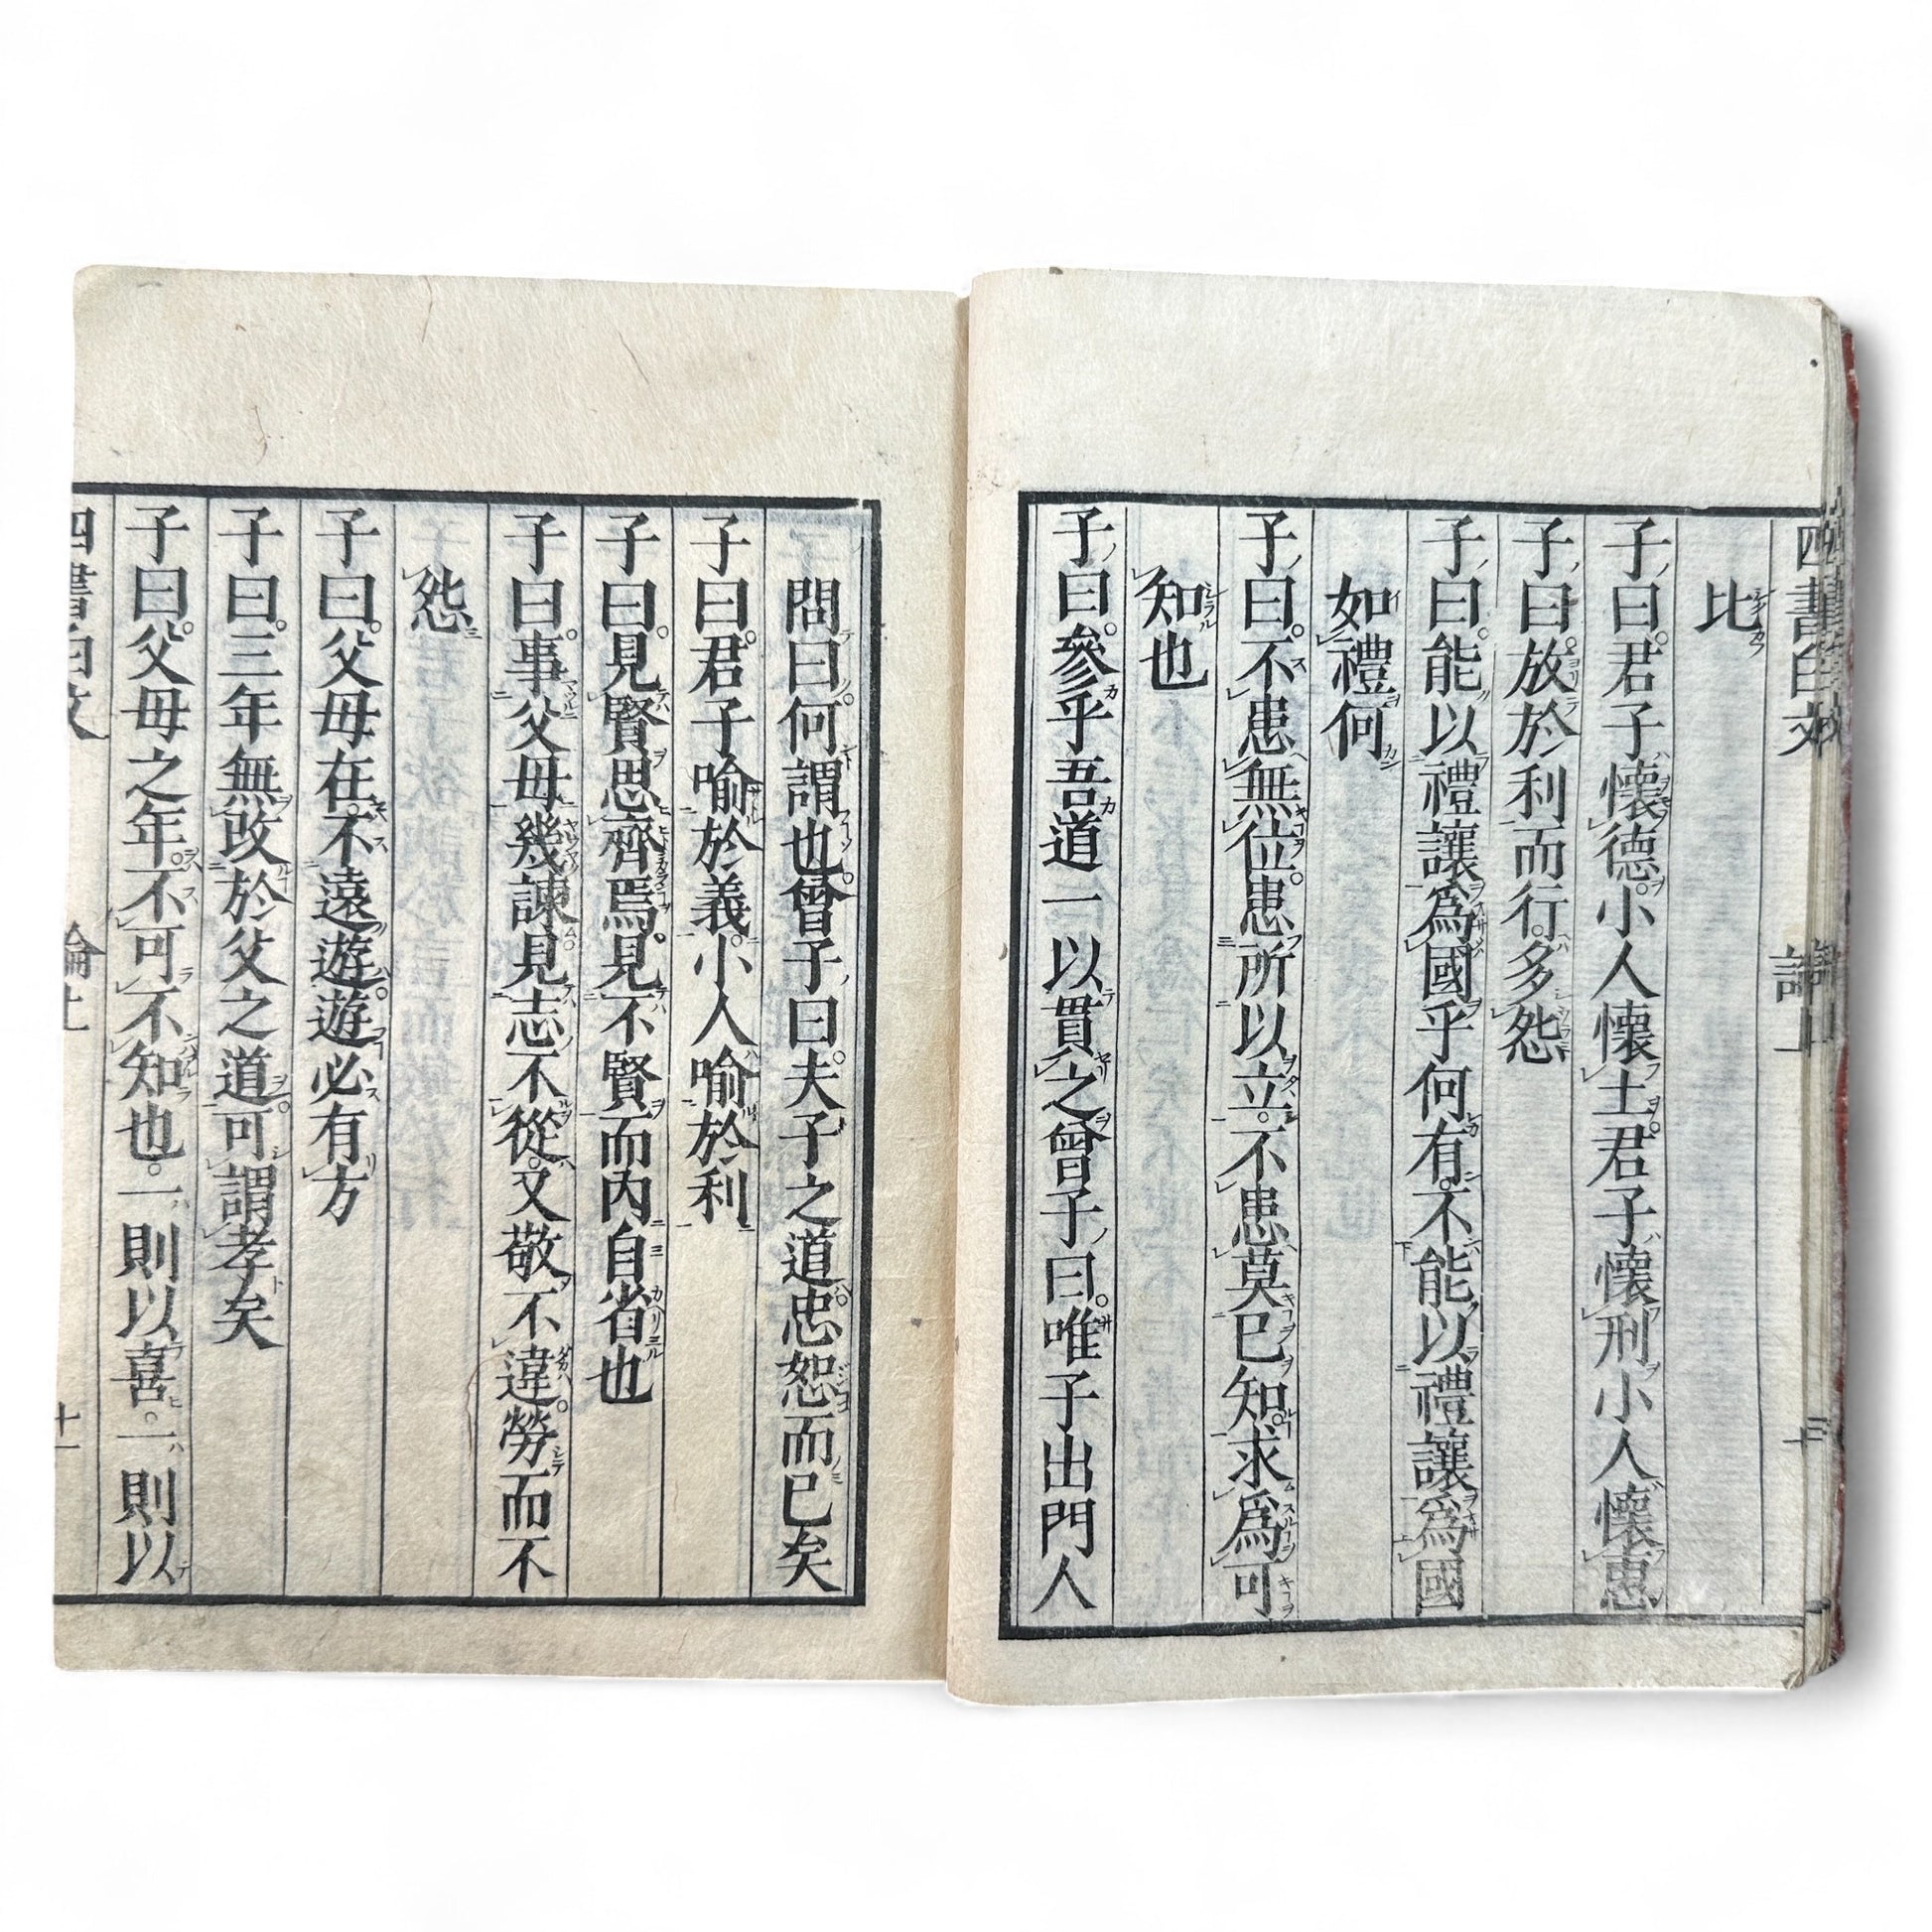 四書白文
比
子曰君子懷德小人懷土君子懷刑小人懷惠
子曰放於利而行多怨
子曰能以禮讓爲國乎何有不能以禮讓爲國
如禮何
子曰不患無位患所以立不患莫已知求爲可
知也
子曰參乎吾道一以貫之曾子曰唯子出門人
問曰何謂也曾子曰夫子之道忠恕而已矣
子曰君子喻於義小人喻於利
子曰見賢思齊焉見不賢而內自省也
子曰事父母幾諫見志不從又敬不違勞而不
怨
子曰父母在不遠遊遊必有方
子曰三年無改於父之道可謂孝矣
子曰父母之年不可不知也一則以喜一則以
四書白文 論上 十一